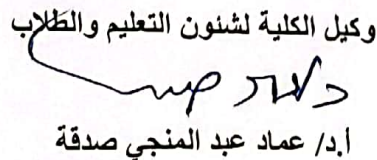 وكيل الكلية لشئون التعليم والطلاب
أ.د/ عماد عبد المنجي صدقة